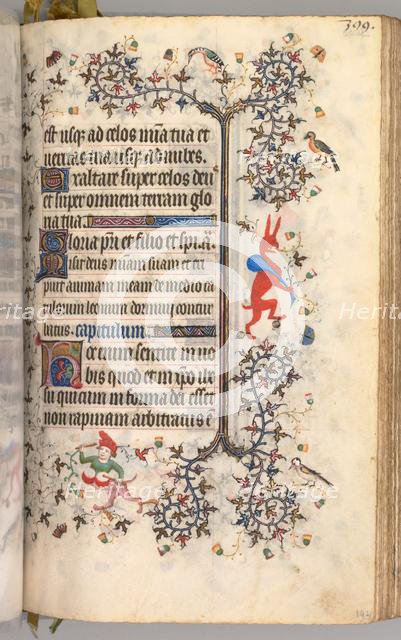 399.
est usq ad celos mia tua et
ueritas tua usq ad nubes.
Exaltare super celos deu
et super omnem terram glo
ria tua
Gloria pri et filio et spi
Misit deus miam suam et eri
puit animam meam de medio ca
tulorum leonum dormiui contur
batus. capitulum
Hoc enim sentite in uo
bis quod et in xpo ihe
su qui cum in forma dei esset
non rapinam arbitratus e
Heritage
Heritage
Heritage
Heritage
142